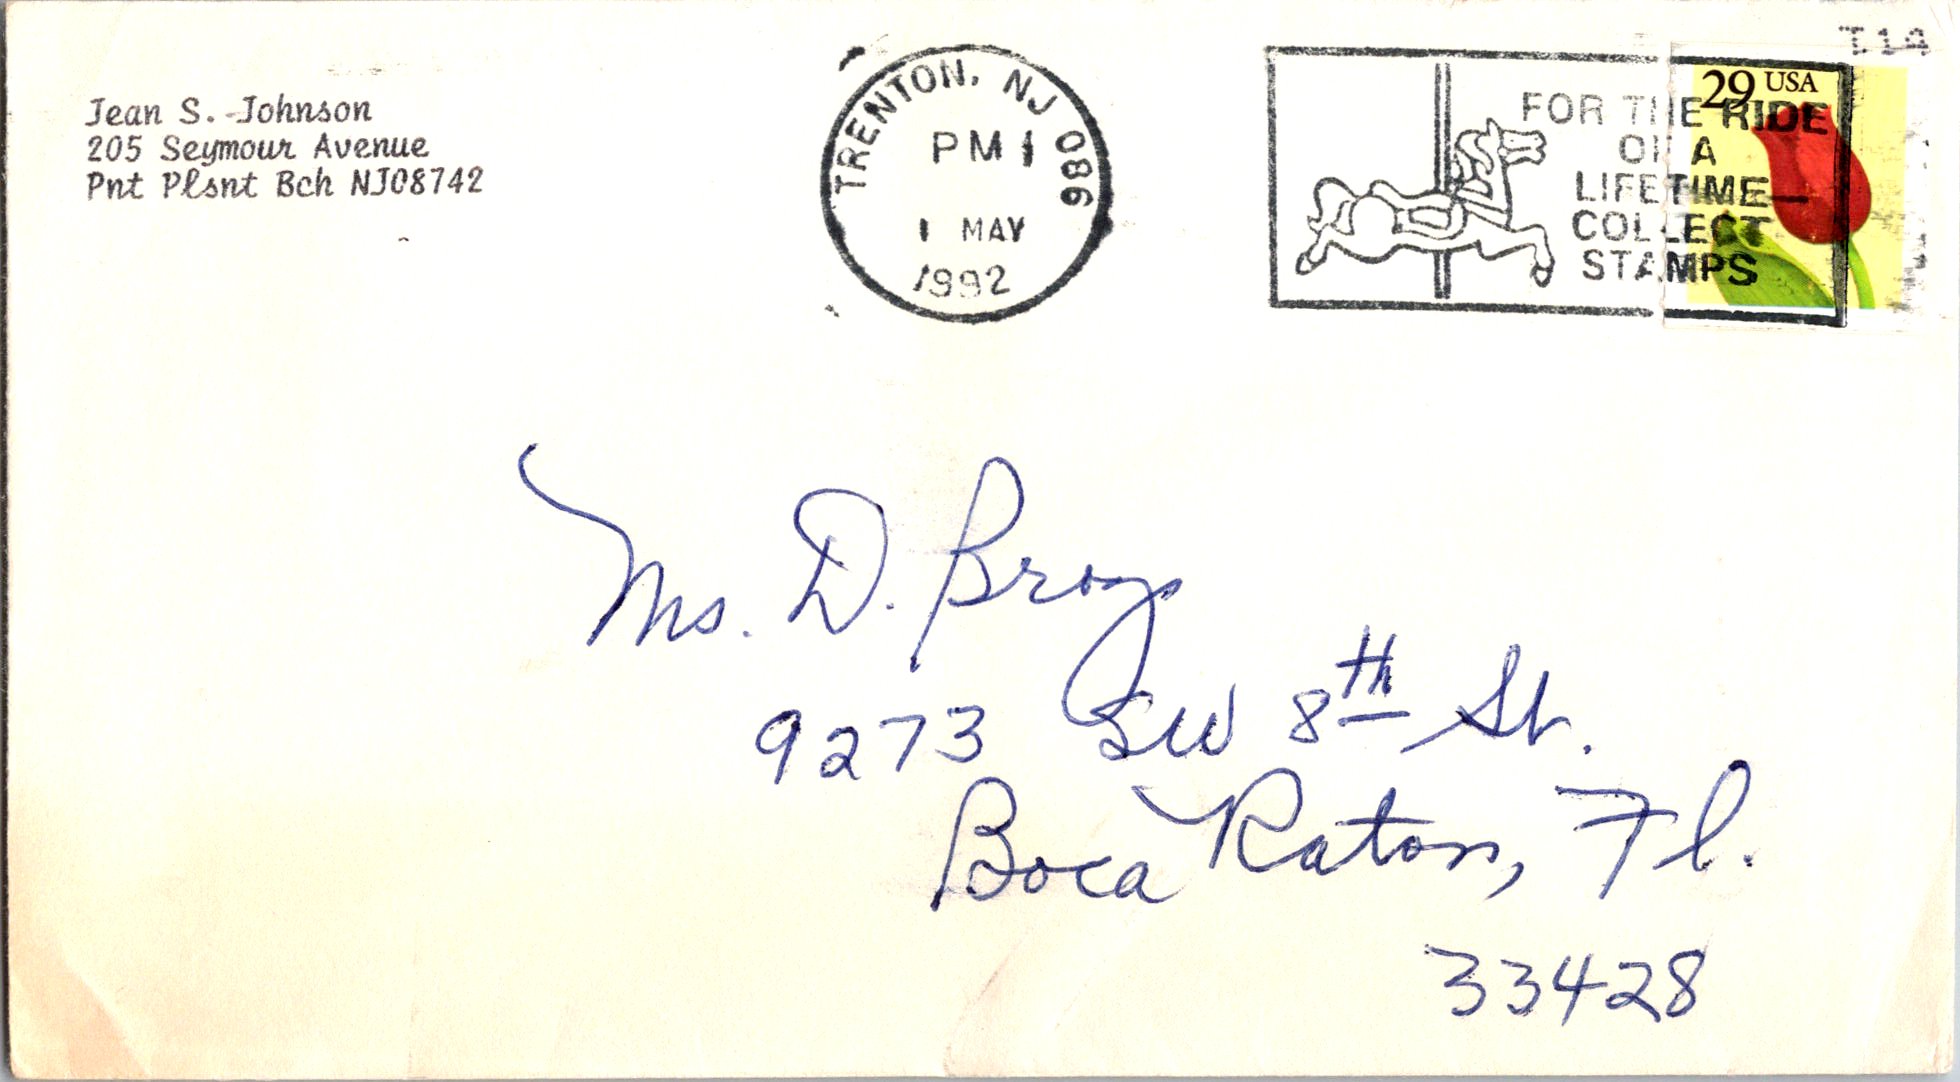 Jean S. Johnson
205 Seymour Avenue
Pnt Plsnt Bch NJ08742
TRENTON, NJ 086
PM
1 MAY
1992
29 USA
FOR THE RIDE
OF A
LIFETIME—
COLLECT
STAMPS
Ms. D. Brogs
9273 SW 8th St.
Boca Raton, Fl.
33428